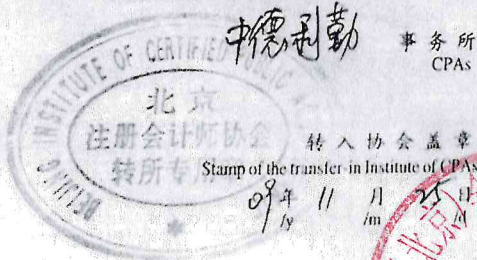 中德利勤 事务所
CPAs
BEIJING INSTITUTE OF CERTIFIED PUBLIC
北京
注册会计师协会
转所专用
转入协会盖章
Stamp of the transfer-in Institute of CPAs
09年 11月 25日
/y /m /d
北京